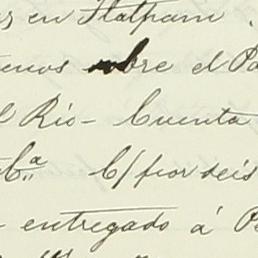 en Tlalpam.
enos sobre el Pa
l Rio - Cuenta
Cª C/ por seis
entregado á P